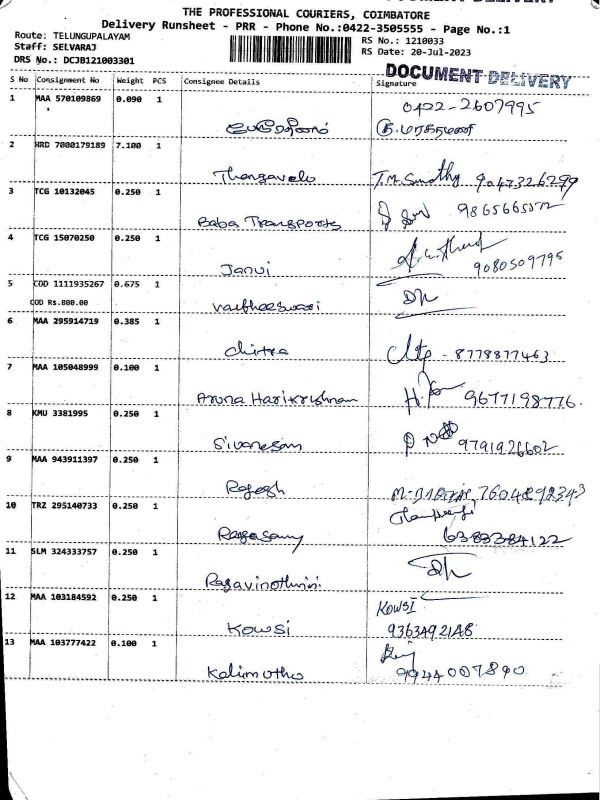 THE PROFESSIONAL COURIERS, COIMBATORE
Delivery Runsheet - PRR - Phone No.:0422-3505555 - Page No.:1
Route: TELUNGUPALAYAM
Staff: SELVARAJ
DRS No.: DCJB121003301
RS No.: 1210033
RS Date: 20-Jul-2023
DOCUMENT DELIVERY
S No Consignment No Weight PCS Consignee Details Signature
1 MAA 570109869 0.090 1 0422-2607995
2 HRD 7000179189 7.100 1 Thangavelu T.M.Sumathy 9047326299
3 TCG 10132045 0.250 1 Baba Transports
4 TCG 15070250 0.250 1 Janvi 9080509795
5 COD 1111935267 0.675 1
COD Rs.800.00
6 MAA 295914719 0.385 1 Chitra - 8778877463
7 MAA 105048999 0.100 1 Aruna Harikrishnan 9677198776
8 KMU 3381995 0.250 1 Sivanesan 9791926602
9 MAA 943911397 0.250 1 Rajesh 7604892343
10 TRZ 295140733 0.250 1 Ragasamy 6383384122
11 SLM 324333757 0.250 1
12 MAA 103184592 0.250 1 Kowsi KOWSI
13 MAA 103777422 0.100 1 Kalimuthu 9944007890